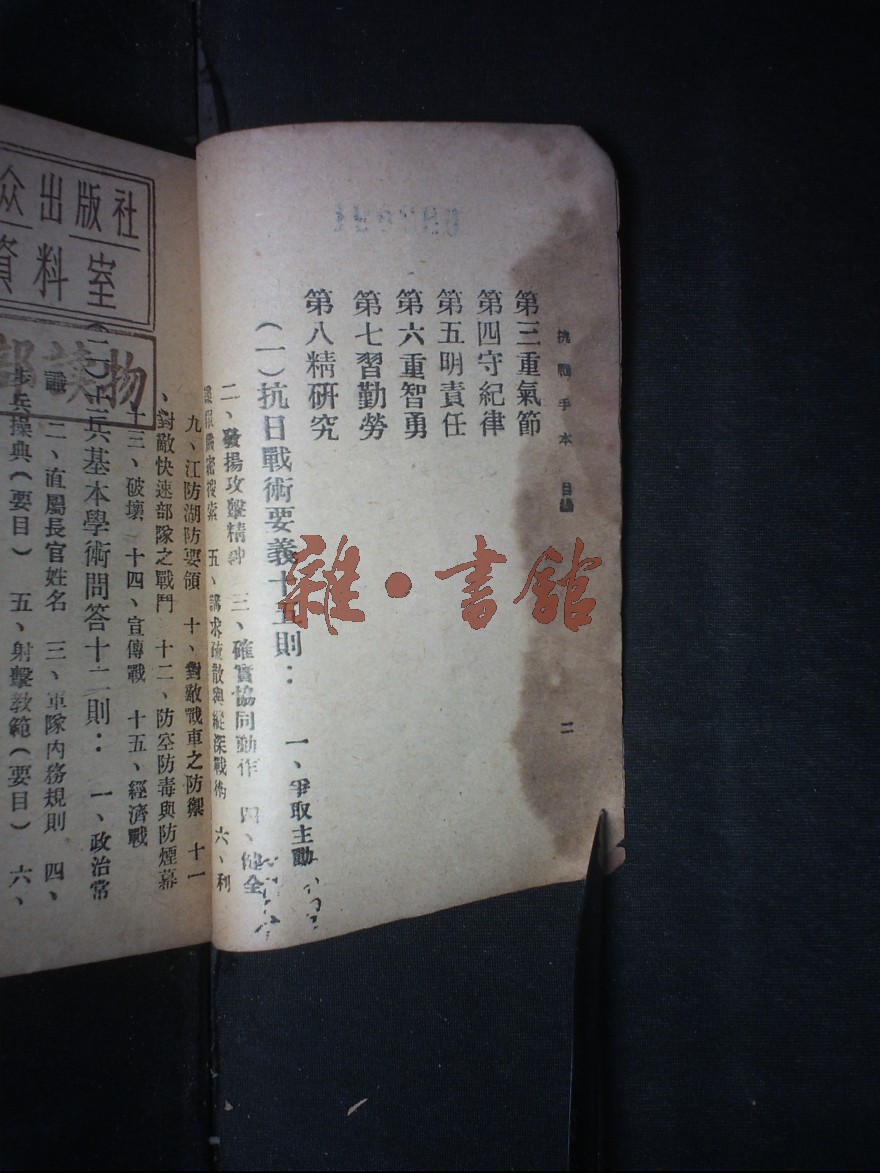 抗戰手本 目錄 二
第三重氣節
第四守紀律
第五明責任
第六重智勇
第七習勤勞
第八精研究
(一)抗日戰術要義十五則： 一、爭取主動
二、發揚攻擊精神 三、確實協同動作 四、健全
諜報機密搜索 五、講求疏散與縱深戰術 六、利
九、江防湖防要領 十、對敵戰車之防禦 十一
、對敵快速部隊之戰鬥 十二、防空防毒與防煙幕
十三、破壞 十四、宣傳戰 十五、經濟戰
(二)士兵基本學術問答十二則： 一、政治常
識 二、直屬長官姓名 三、軍隊內務規則 四、
步兵操典(要目) 五、射擊教範(要目) 六、
众出版社
資料室
部读物
雜·書館